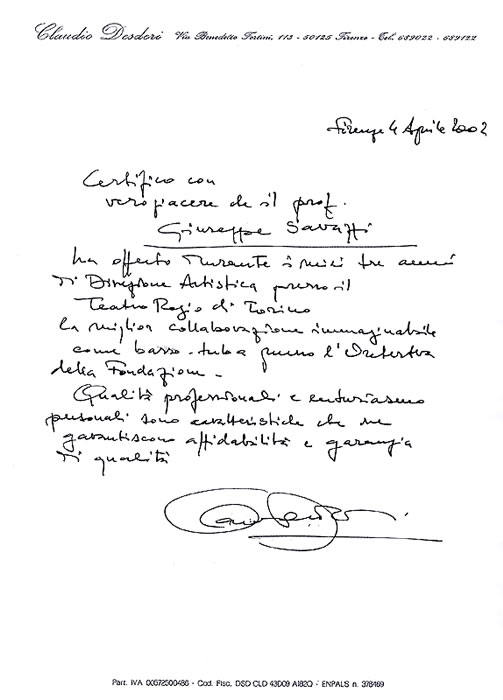 Claudio Desderi Via Benedetto Fortini, 113 - 50125 Firenze - Tel. 689022 - 689122
Firenze 4 Aprile 2002
Certifico con
vero piacere che il prof.
Giuseppe Savazzi
ha offerto durante i miei tre anni
di Direzione Artistica presso il
Teatro Regio di Torino
la miglior collaborazione immaginabile
come basso-tuba presso l'Orchestra
della Fondazione -
Qualità professionali e entusiasmo
personali sono caratteristiche che ne
garantiscono affidabilità e garanzia
di qualità
Part. IVA - Cod. Fisc. DSD CLD 43D09 A182O - ENPALS n. 378469